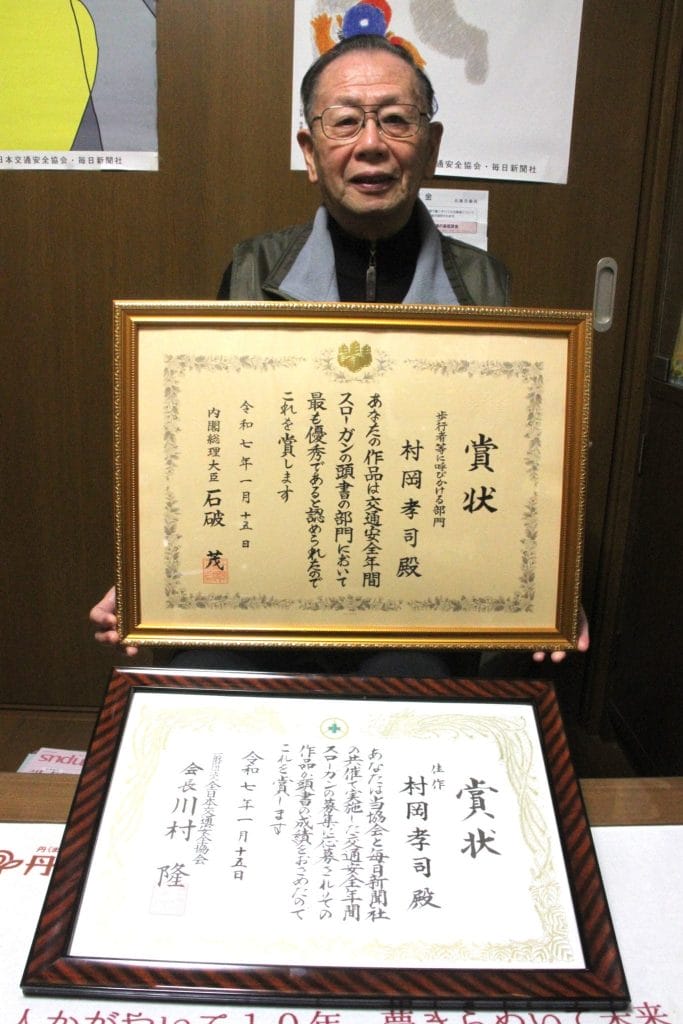 日本交通安全協会・毎日新聞社
交通安全協会・毎日新聞社
賞状
歩行者等に呼びかける部門
村岡孝司殿
あなたの作品は交通安全年間
スローガンの頭書の部門において
最も優秀であると認められたので
これを賞します
令和七年一月十五日
内閣総理大臣 石破 茂
賞状
佳作
村岡孝司殿
あなたは当協会と毎日新聞社
の共催で実施した交通安全年間
スローガンの募集に応募されその
作品が頭書の成績をおさめたので
これを賞します
令和七年一月十五日
一般財団法人全日本交通安全協会
会長 川村 隆
丹
人かがやいて10年 夢きらめいて未来